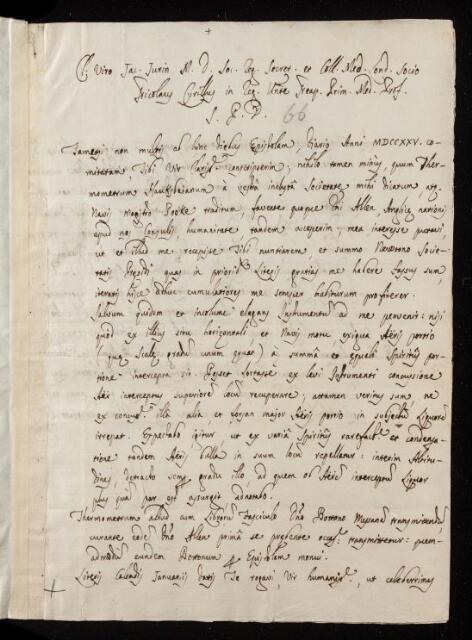 Cl: Viro Jac. Jurin M. D. Soc. Reg. Secret. et Coll. Med. Lond. Socio
Nicolaus Cyrillus in Reg. Univ. Neap. Prim. Med. Prof.
S. P. D. 66
Tametsi non multis ab hinc diebus Epistolam, Diario Anni MDCCXXV. co-
mitatam Tibi Vir Clariss. conscripserim; nihilo tamen minus, quum Ther-
mometrum Hauksbaianum à vestra inclyta Societate mihi dicatum, atq.
Navis magistro Cooke traditum, favente quoque Dño Allen Anglicæ nationis
apud nos Consulis, humanitate tandem acceperim; mea interesse putavi,
ut et illud me recepisse Tibi nuntiarem et summo Newtono Socie-
tatis Præsidi quas in prioribus Literis gratias me habere fassus sum,
iterari hisce adhuc cumulatiores me semper habiturum profiterer.
Salvum quidem et incolume elegans Instrumentum ad me pervenit: nisi
quod ex illius situ horizontali et Navis motu exigua Aëris portio
(quæ Scalæ gradum unum æquat) à summa et æquali Spiritus por-
tione intercepta sit. Posset fortasse ex levi Instrumenti concussione
Aër interceptus superiorem locum recuperare; attamen veritus sum ne
ex concuss. illa alia et forsan major Aëris portio in subjectum Liquorem
irrepat. Expectabo igitur ut ex varia Spiritus rarefact. et condensa-
tione tandem Aëris bulla in suum locum repellatur: interim Altitu-
dines, detracto semp. gradu illo ad quem ob Aërem interceptum Liquor
plus quàm par est assurgit adnotabo.
Thermometrum aliud cum Librorum fasciculo Dño Bottono Messanam transmittendum
curante eodem Dño Allen primâ se præbente occas. transmittetur: quem-
admodum eundem Bottonum p Epistolam monui.
Literis Calendis Januarii datis Te rogavi, Vir humaniss., ut celeberrimas